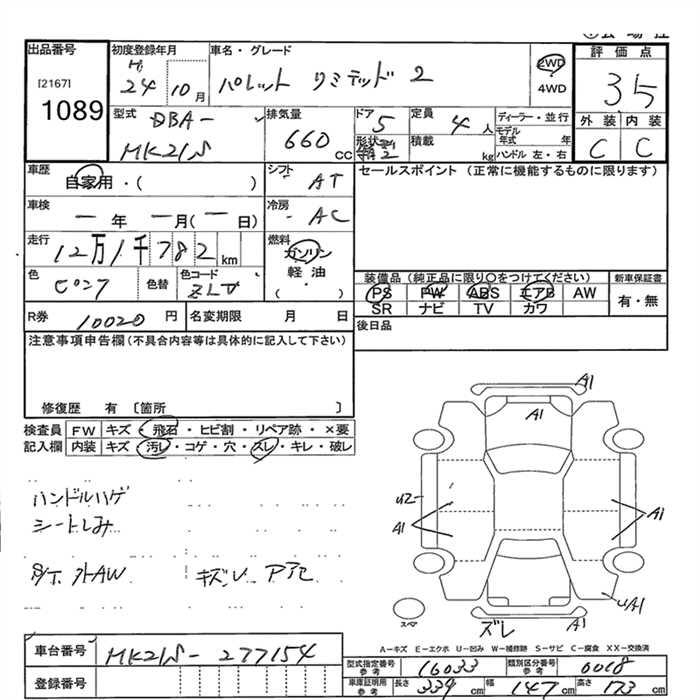 出品番号
[2167]
1089
初度登録年月
H 24 10月
車名・グレード
パレット リミテッド 2
2WD
4WD
評価点
35
外装 内装
C C
型式
DBA-
MK21S
排気量
660 cc
ドア 5
形状
定員 4人
積載 kg
ディーラー・並行
モデル年式 年
ハンドル 左・右
車歴
自家用・( )
シフト AT
車検
ー年ー月(ー日)
冷房 AC
走行
12万1千782km
燃料
ガソリン
軽油
( )
色 ピンク
色替
色コード
R券 10020円
名変期限 月 日
セールスポイント (正常に機能するものに限ります)
装備品(純正品に限り○をつけてください)
PS PW ABS エアB AW
SR ナビ TV カワ
新車保証書
有・無
後日品
注意事項申告欄(不具合内容等は具体的に記入して下さい)
修復歴 有 〔箇所 〕
検査員 FW キズ・飛石・ヒビ割・リペア跡・×要
記入欄 内装 キズ・汚レ・コゲ・穴・スレ・キレ・破レ
ハンドルハゲ
シートしみ
外AW キズU
A1
A1
U2
A1
A1
U/A1
ズレ A1
スペア
A-キズ E-エクボ U-凹み W-補修跡 S-サビ C-腐食 XX-交換済
車台番号 MK21S-277154
登録番号
型式指定番号 参考 16033
類別区分番号 参考 0018
車庫証明用 参考 長さ 339cm 幅 147cm 高さ 173cm